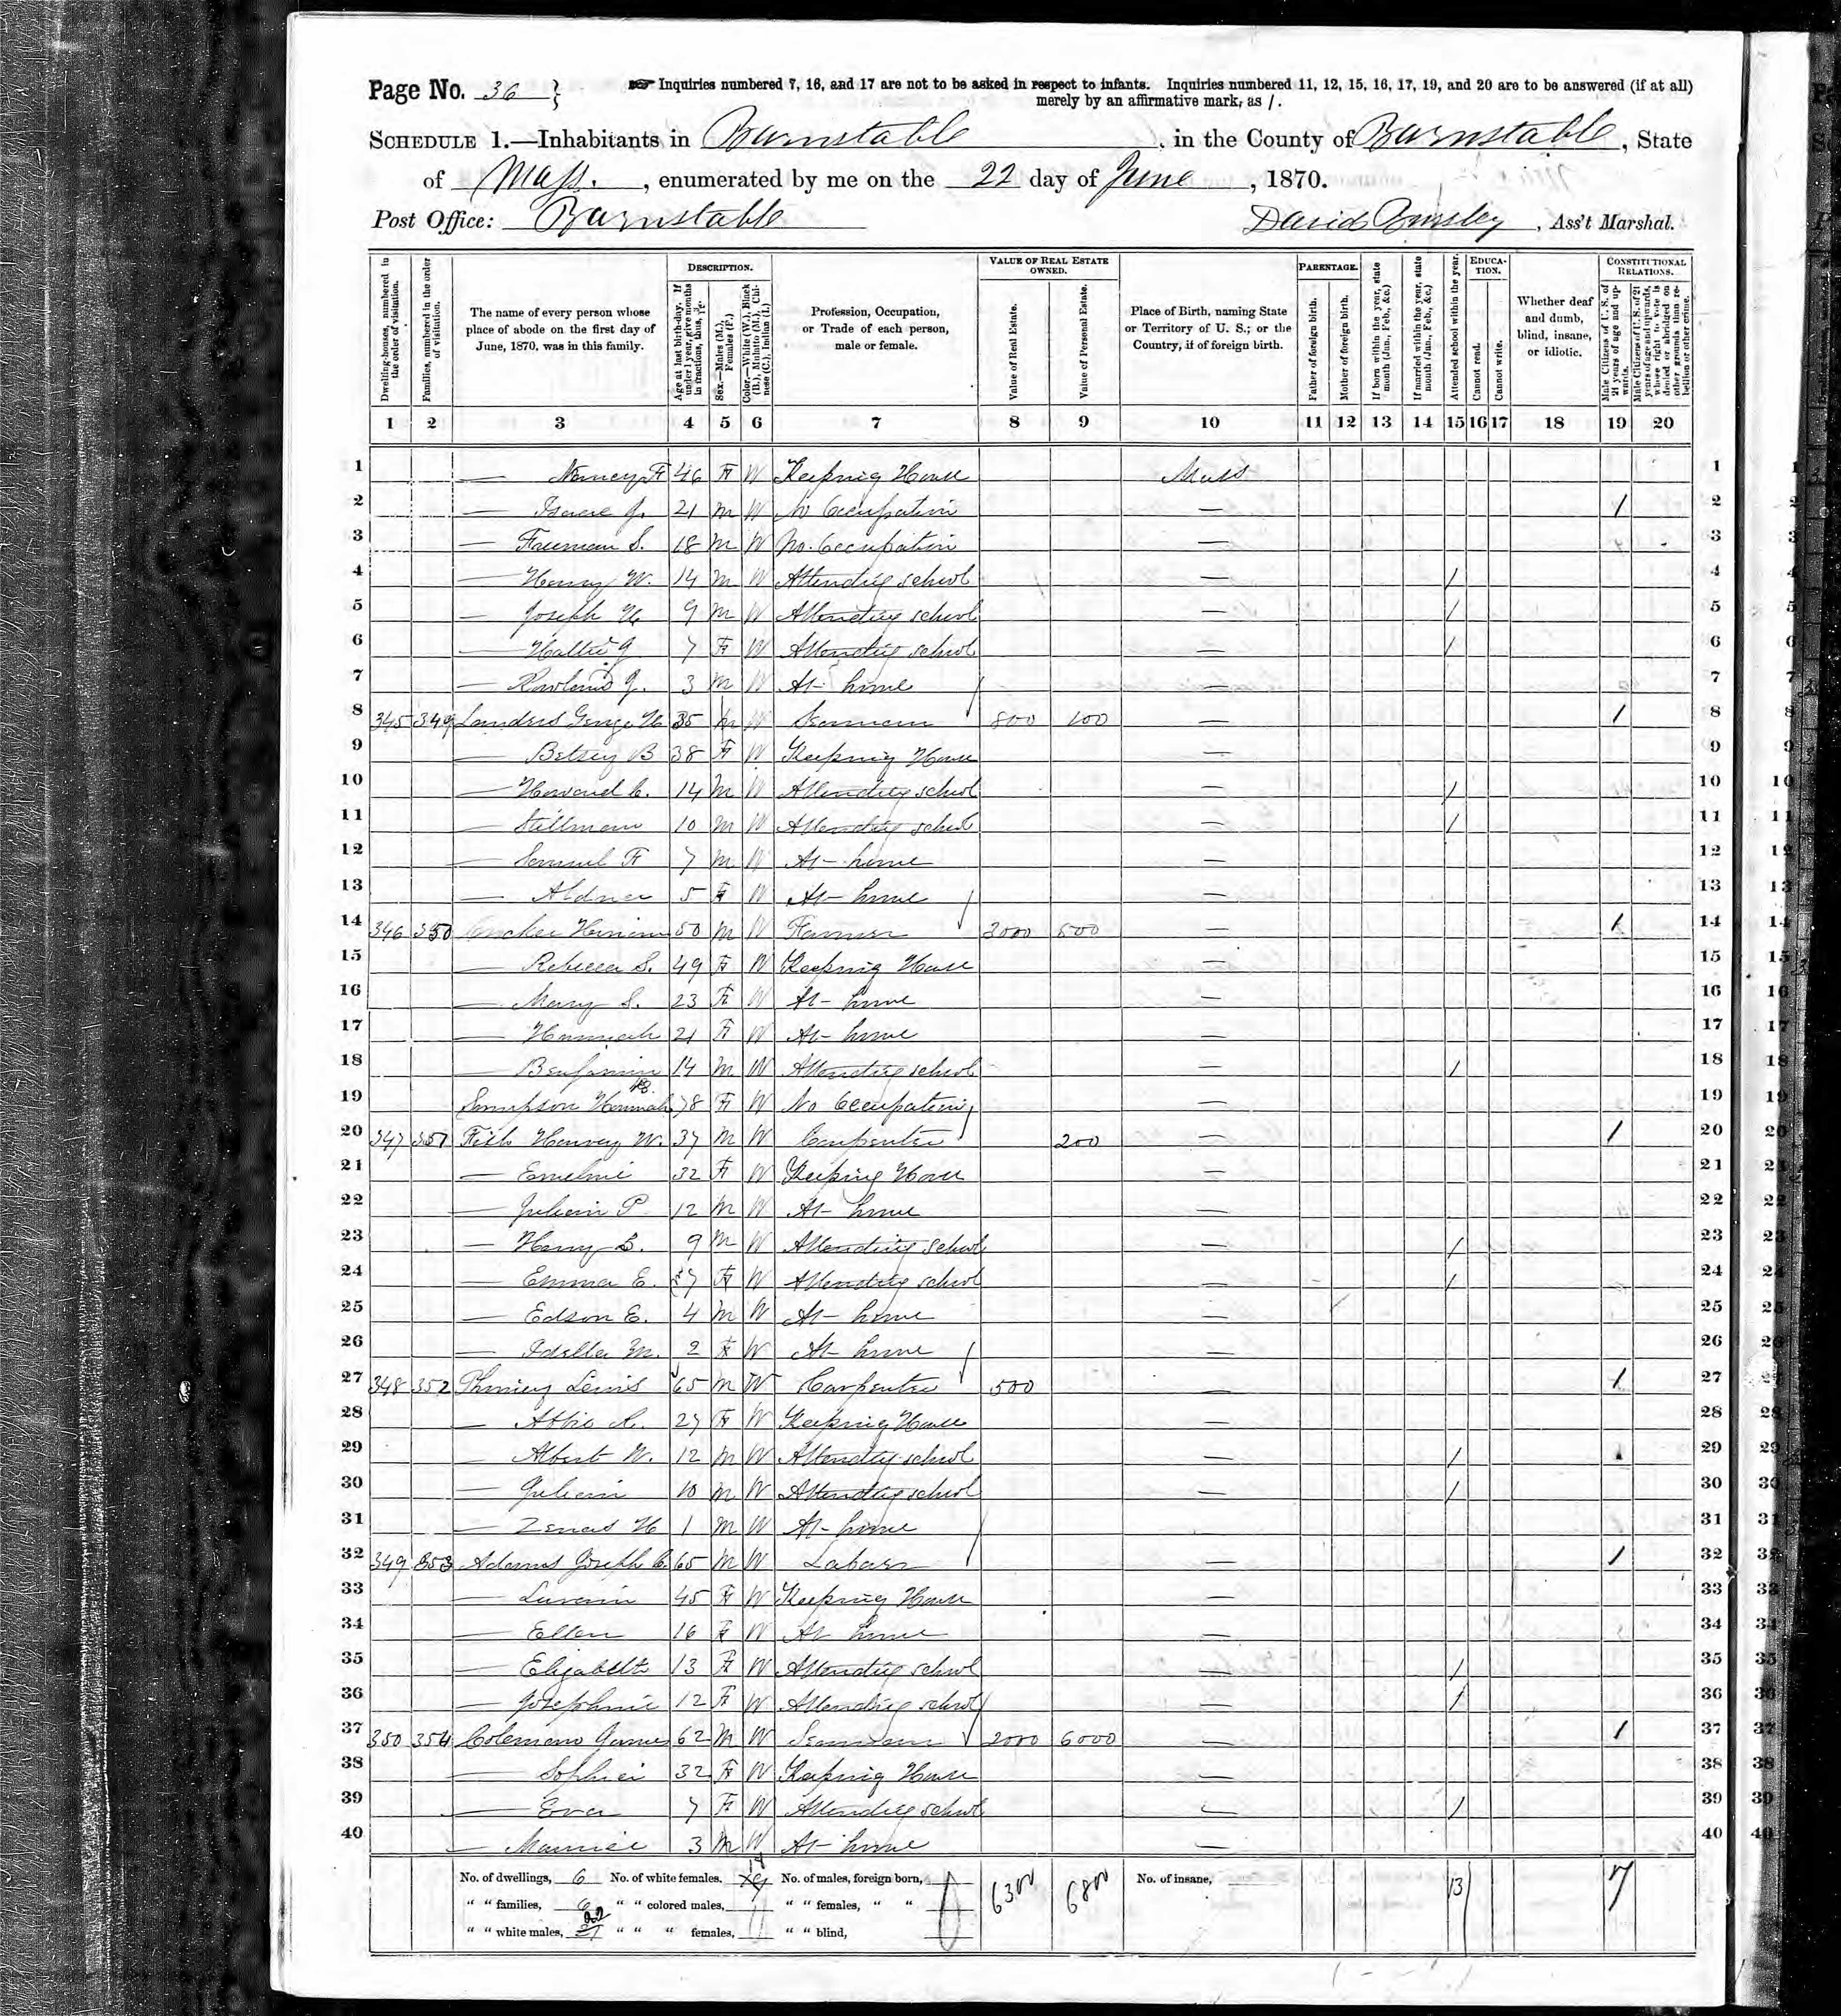 Page No. 36 } ☞ Inquiries numbered 7, 16, and 17 are not to be asked in respect to infants. Inquiries numbered 11, 12, 15, 16, 17, 19, and 20 are to be answered (if at all)
merely by an affirmative mark, as /.
SCHEDULE 1.—Inhabitants in Barnstable, in the County of Barnstable, State
of Mass., enumerated by me on the 22 day of June, 1870.
Post Office: Barnstable David , Ass't Marshal.
DESCRIPTION. VALUE OF REAL ESTATE OWNED. PARENTAGE. EDUCATION. CONSTITUTIONAL RELATIONS.
Dwelling-houses, numbered in the order of visitation.
Families, numbered in the order of visitation.
The name of every person whose place of abode on the first day of June, 1870, was in this family.
Age at last birth-day. If under 1 year, give months in fractions, thus,
Sex.—Males (M.), Females (F.)
Color.—White (W.), Black (B.), Mulatto (M.), Chinese (C.), Indian (I.)
Profession, Occupation, or Trade of each person, male or female.
Value of Real Estate.
Value of Personal Estate.
Place of Birth, naming State or Territory of U. S.; or the Country, if of foreign birth.
Father of foreign birth.
Mother of foreign birth.
If born within the year, state month (Jan., Feb., &c.)
If married within the year, state month (Jan., Feb., &c.)
Attended school within the year.
Cannot read.
Cannot write.
Whether deaf and dumb, blind, insane, or idiotic.
Male Citizens of U. S. of 21 years of age and upwards.
Male Citizens of U. S. of 21 years of age and upwards, whose right to vote is denied or abridged on other grounds than rebellion or other crime.
1 2 3 4 5 6 7 8 9 10 11 12 13 14 15 16 17 18 19 20
1 — Nancy F 46 F W Keeping House Mass 1
2 — Isaac J. 21 M W No Occupation — / 2
3 — Freeman S. 18 M W No. Occupation — 3
4 — Henry W. 14 M W Attending school — / 4
5 — Joseph H 9 M W Attending school — / 5
6 — Hattie J 7 F W Attending school — / 6
7 — Rowland J. 3 M W At home — 7
8 345 349 Landers George H 35 M W Seaman 800 100 — / 8
9 — Betsey B 38 F W Keeping House — 9
10 — Howard C. 14 M W Attending school — / 10
11 — Stillman 10 M W Attending school — / 11
12 — Samuel F 7 M W At home — 12
13 — 5 F W At home — 13
14 346 350 50 M W Farmer 3000 500 — / 14
15 — Rebecca S. 49 F W Keeping House — 15
16 — Mary S. 23 F W At home — 16
17 — Hannah 21 F W At home — 17
18 — Benjamin 14 M W Attending school — / 18
19 Sampson Hannah 78 F W No Occupation — 19
20 347 351 Fish Harvey W. 37 M W Carpenter 200 — / 20
21 — Emeline 32 F W Keeping House — 21
22 — Julian P. 12 M W At home — 22
23 — Harry L. 9 M W Attending school — / 23
24 — Emma E. 7 F W Attending school — / 24
25 — Edson E. 4 M W At home — 25
26 — Idella M. 2 F W At home — 26
27 348 352 Phinney Lewis 65 M W Carpenter 500 — / 27
28 — Abbie R. 27 F W Keeping House — 28
29 — Albert W. 12 M W Attending school — / 29
30 — Julian 10 M W Attending school — / 30
31 — Zenas H 1 M W At home — 31
32 349 353 Adams Joseph C. 65 M W Labarer — / 32
33 — 45 F W Keeping House — 33
34 — Ellen 16 F W At home — 34
35 — Elizabeth 13 F W Attending school — / 35
36 — Josephine 12 F W Attending school — / 36
37 350 354 Coleman James 62 M W Seaman 2000 6000 — / 37
38 — Sophia 32 F W Keeping House — 38
39 — Eva 7 F W Attending school — / 39
40 — Maurice 3 M W At home — 40
No. of dwellings, 6 No. of white females, 19 No. of males, foreign born, 6300 6800 No. of insane, 13 7
" " families, 6 " " colored males, " " females, " "
" " white males, 22 " " " females, " " blind,